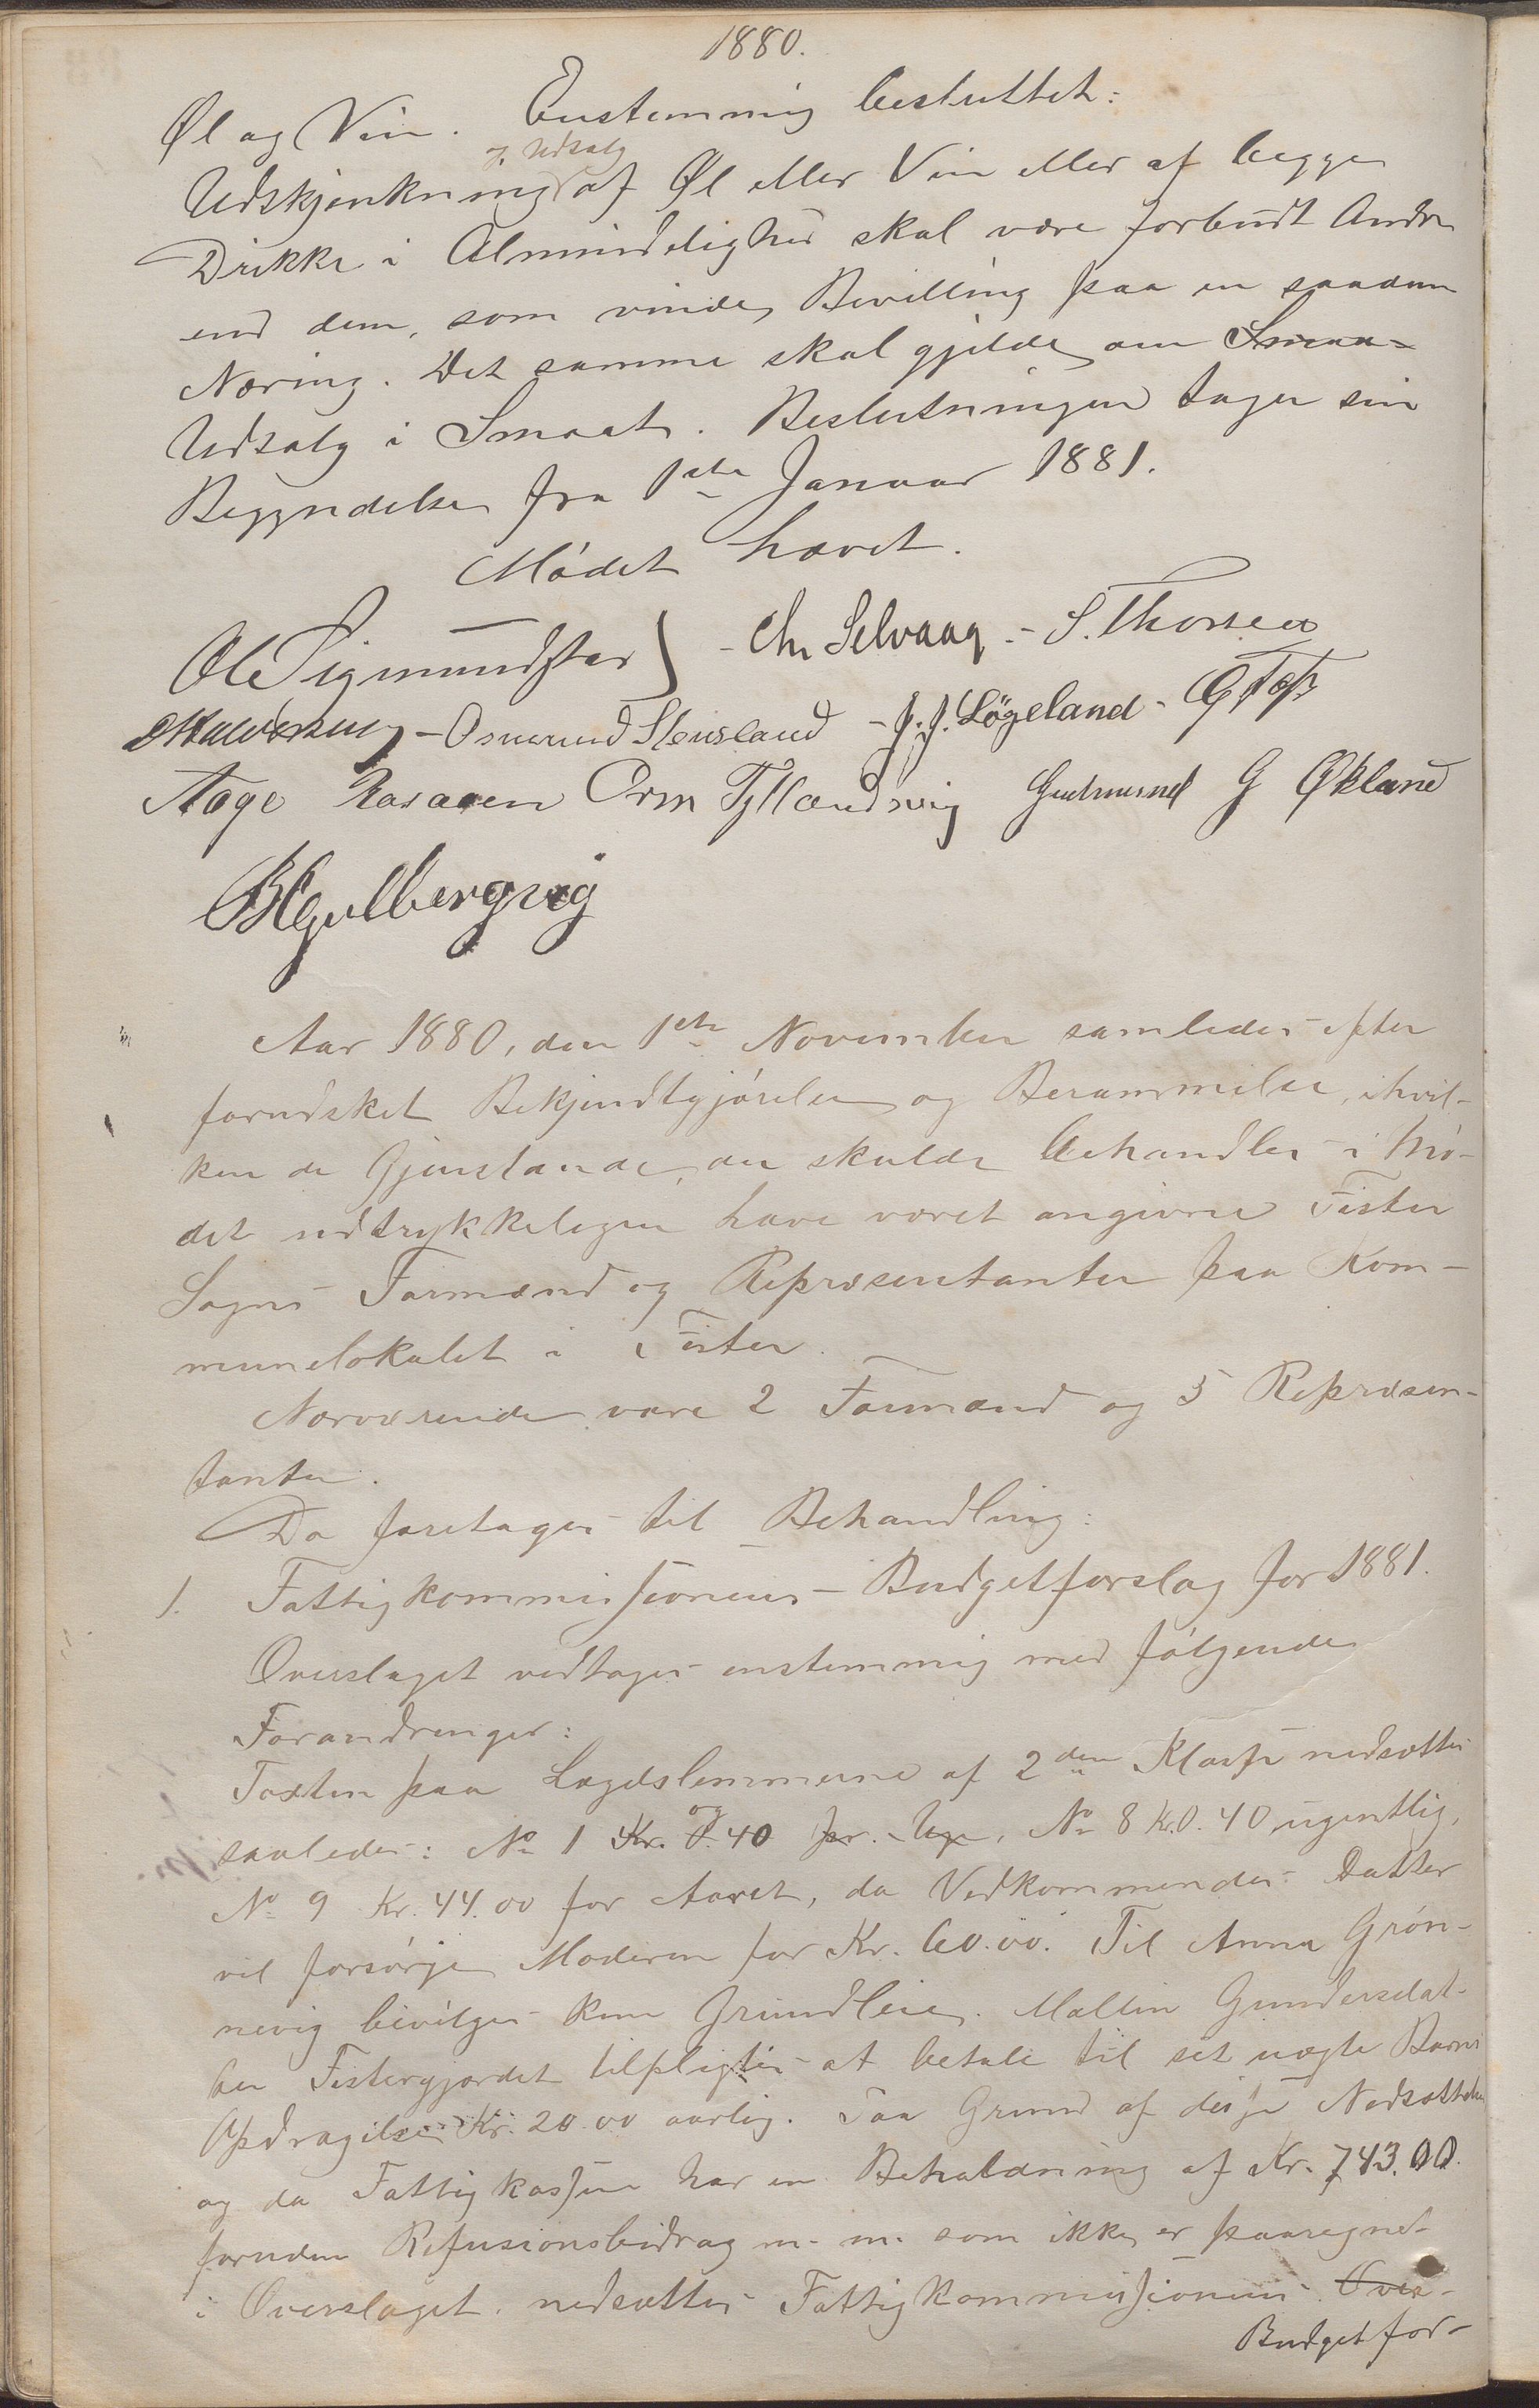 1880.
Øl og Vin. Enstemmig besluttet:
og Udsalg
Udskjenkning af Øl eller Vin eller af begge
Drikke i Almindelighed skal være forbudt Andre
end dem, som vinde Bevilling paa en saadan
Næring. Det samme skal gjelde om Smaa-
Udsalg i Smaat. Beslutningen tager sin
Begyndelse fra 1ste Januar 1881.
Mødet hævet.
Ole Sigmundstad - Chr Selvaag - S. Thorsen
- Osmund Steinsland - J. J. Løgeland -
Aage Orm Tytlandsvig Gudmund G Økland
B H Gulbergvig
Aar 1880, den 1ste November samledes efter
forudsket Bekjendtgjørelse og Berammelse, i hvil-
ken de Gjenstande, der skulde behandles i Mø-
det udtrykkeligen have været angivne Fister
Sogns Formænd og Repræsentanter paa Kom-
munelokalet i Fister.
Nærværende vare 2 Formænd og 5 Repræsen-
tanter.
Da foretages til Behandling:
1. Fattigkommissionens Budgetforslag for 1881.
Overslaget vedtages enstemmig med følgende
Forandringer:
Taxten paa Lægdslemmerne af 2den Klasse nedsættes
saaledes: No 1 Kr. 0.40 pr. Uge, No 8 Kr. 0.40 ugentlig,
og
No 9 Kr. 44.00 for Aaret, da Vedkommendes Datter
vil forsørge Moderen for Kr. 60.00. Til Anna Grøn-
nevig bevilges kun Grundleie. Mallin Gundersdat-
ter Fistergjerdet tilpligtes at betale til sit uægte Barns
Opdragelse Kr. 20.00 aarlig. Paa Grund af disse Nedsættelser
og da Fattigkassen har en Beholdning af Kr. 743.00
foruden Refusionsbidrag m. m. som ikke er paaregnet
i Overslaget nedsættes Fattigkommissionens Over-
Budgetfor-